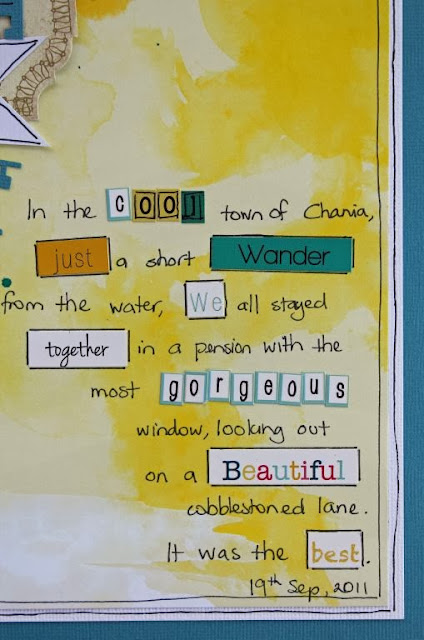 In the cool town of Chania,
just a short Wander
from the water, We all stayed
together in a pension with the
most gorgeous
window, looking out
on a Beautiful
cobblestoned lane.
It was the best.
19th Sep, 2011